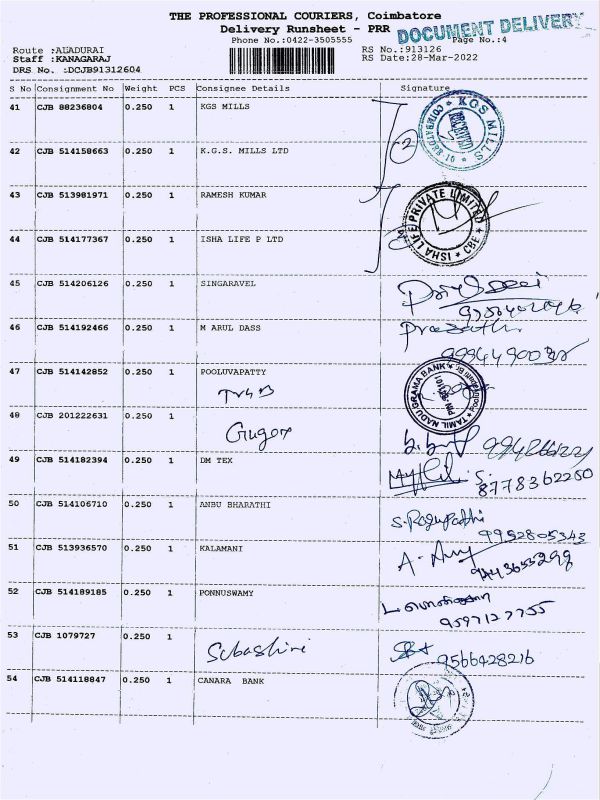 THE PROFESSIONAL COURIERS, Coimbatore
Delivery Runsheet - PRR
DOCUMENT DELIVERY
Phone No.:0422-3505555
Page No.:4
Route :ALADURAI
RS No.:913126
Staff :KANAGARAJ
RS Date:28-Mar-2022
DRS No. :DCJB91312604
S No Consignment No Weight PCS Consignee Details Signature
41 CJB 88236804 0.250 1 KGS MILLS
KGS MILLS COIMBATORE 10 RECEIVED
2
42 CJB 514158663 0.250 1 K.G.S. MILLS LTD
43 CJB 513981971 0.250 1 RAMESH KUMAR
ISHA LIFE PRIVATE LIMITED CBE
44 CJB 514177367 0.250 1 ISHA LIFE P LTD
45 CJB 514206126 0.250 1 SINGARAVEL
46 CJB 514192466 0.250 1 M ARUL DASS
47 CJB 514142852 0.250 1 POOLUVAPATTY
TAMIL NADU GRAMA BANK
TNGB
48 CJB 201222631 0.250 1
49 CJB 514182394 0.250 1 DM TEX
8778362250
50 CJB 514106710 0.250 1 ANBU BHARATHI
S. Ragupathi
9952805343
51 CJB 513936570 0.250 1 KALAMANI
52 CJB 514189185 0.250 1 PONNUSWAMY
9597127755
53 CJB 1079727 0.250 1 Subashini
9566428216
54 CJB 514118847 0.250 1 CANARA BANK